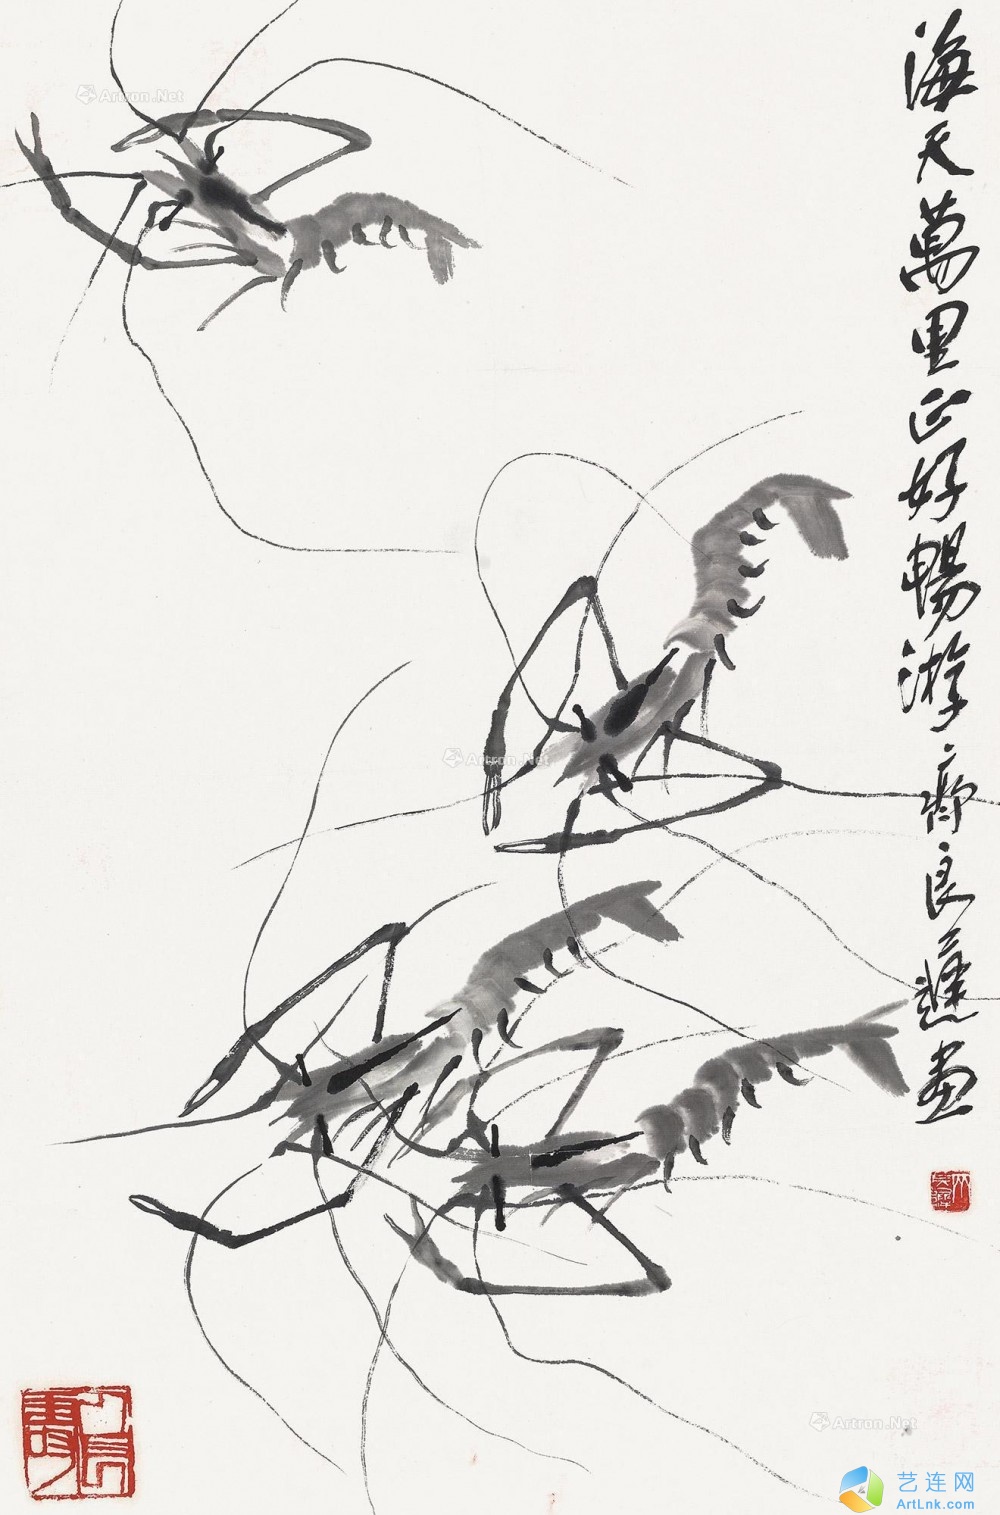 海天萬里正好暢游齊良遲画
Artron.Net
Artron.Net
Artron.Net
艺连网
ArtLnk.com